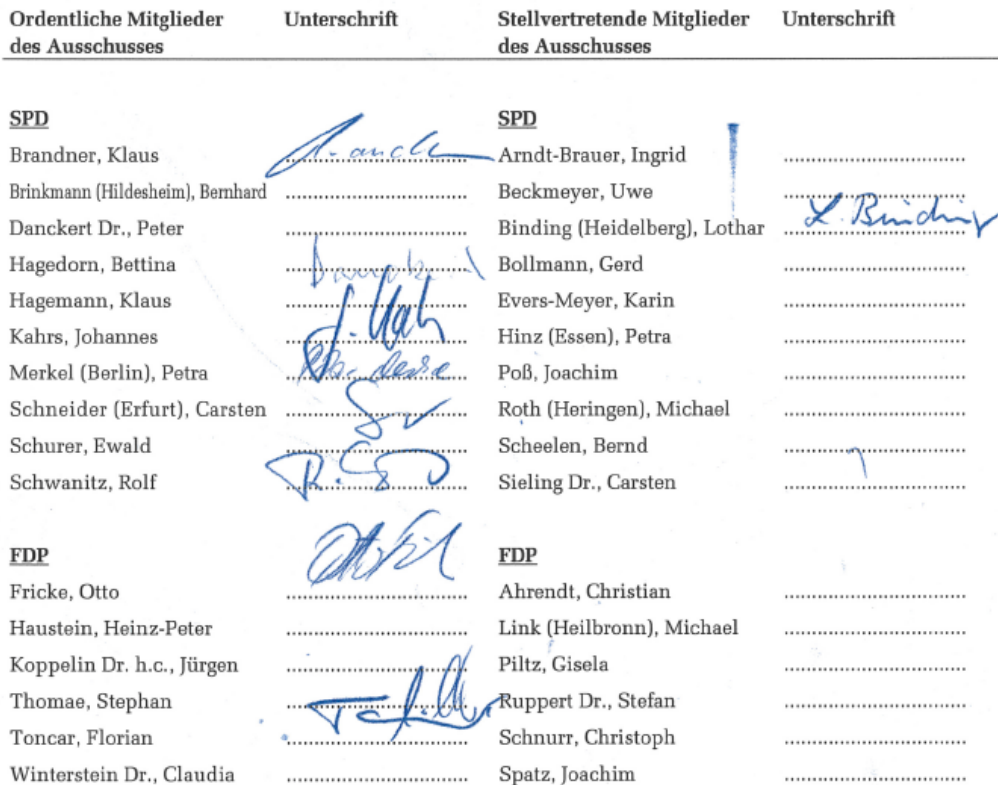 Ordentliche Mitglieder Unterschrift Stellvertretende Mitglieder Unterschrift
des Ausschusses des Ausschusses
SPD SPD
Brandner, Klaus Arndt-Brauer, Ingrid
Brinkmann (Hildesheim), Bernhard Beckmeyer, Uwe
Danckert Dr., Peter Binding (Heidelberg), Lothar L. Binding
Hagedorn, Bettina Bollmann, Gerd
Hagemann, Klaus Evers-Meyer, Karin
Kahrs, Johannes Hinz (Essen), Petra
Merkel (Berlin), Petra Poß, Joachim
Schneider (Erfurt), Carsten Roth (Heringen), Michael
Schurer, Ewald Scheelen, Bernd
Schwanitz, Rolf Sieling Dr., Carsten
FDP FDP
Fricke, Otto Ahrendt, Christian
Haustein, Heinz-Peter Link (Heilbronn), Michael
Koppelin Dr. h.c., Jürgen Piltz, Gisela
Thomae, Stephan Ruppert Dr., Stefan
Toncar, Florian Schnurr, Christoph
Winterstein Dr., Claudia Spatz, Joachim